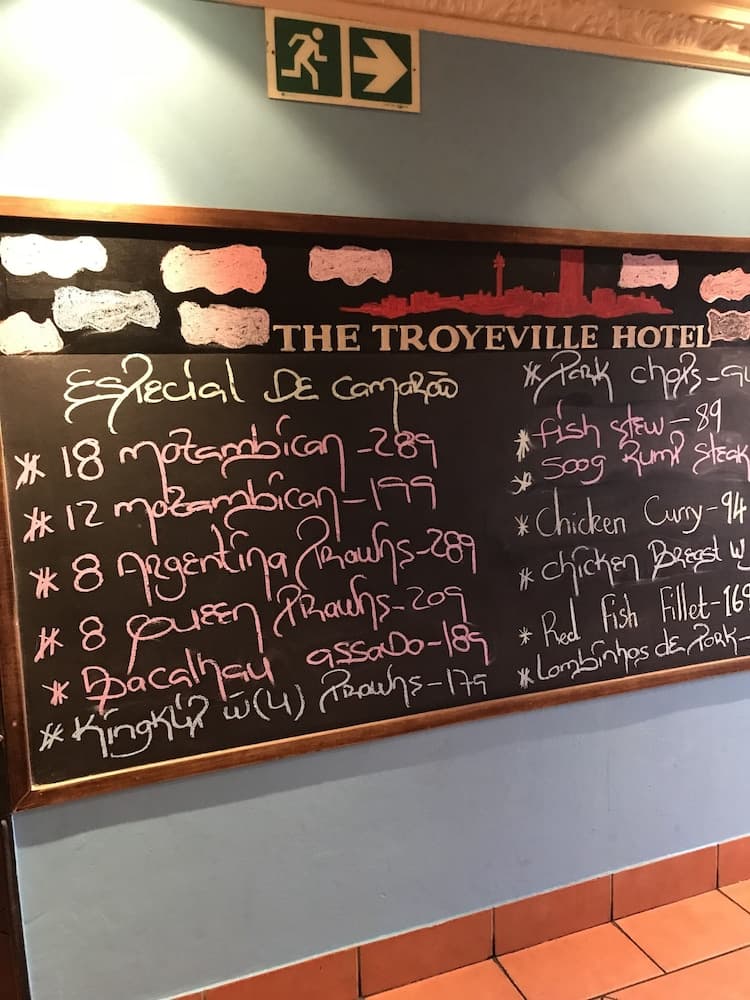 THE TROYEVILLE HOTEL
Especial De Camarão
* 18 mozambican - 289
* 12 mozambican - 199
* 8 Argentina Prawns - 289
* 8 Queen Prawns - 209
* Bacalhau assado - 189
* Kingklip w (4) Prawns - 179
* Pork chops -
* fish stew - 89
* 500g Rump Steak
* Chicken Curry - 94
* chicken Breast w
* Red Fish Fillet - 169
* Lombinhos de Pork -